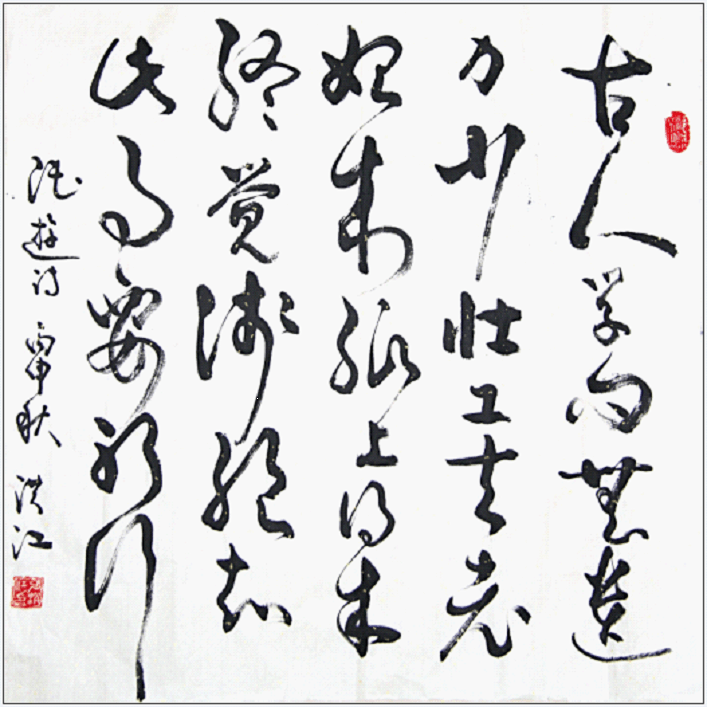 古人学问無遗
力少壮工夫老
始成纸上得来
终觉浅绝知
此事要躬行
陆游诗 丙申秋 洪江